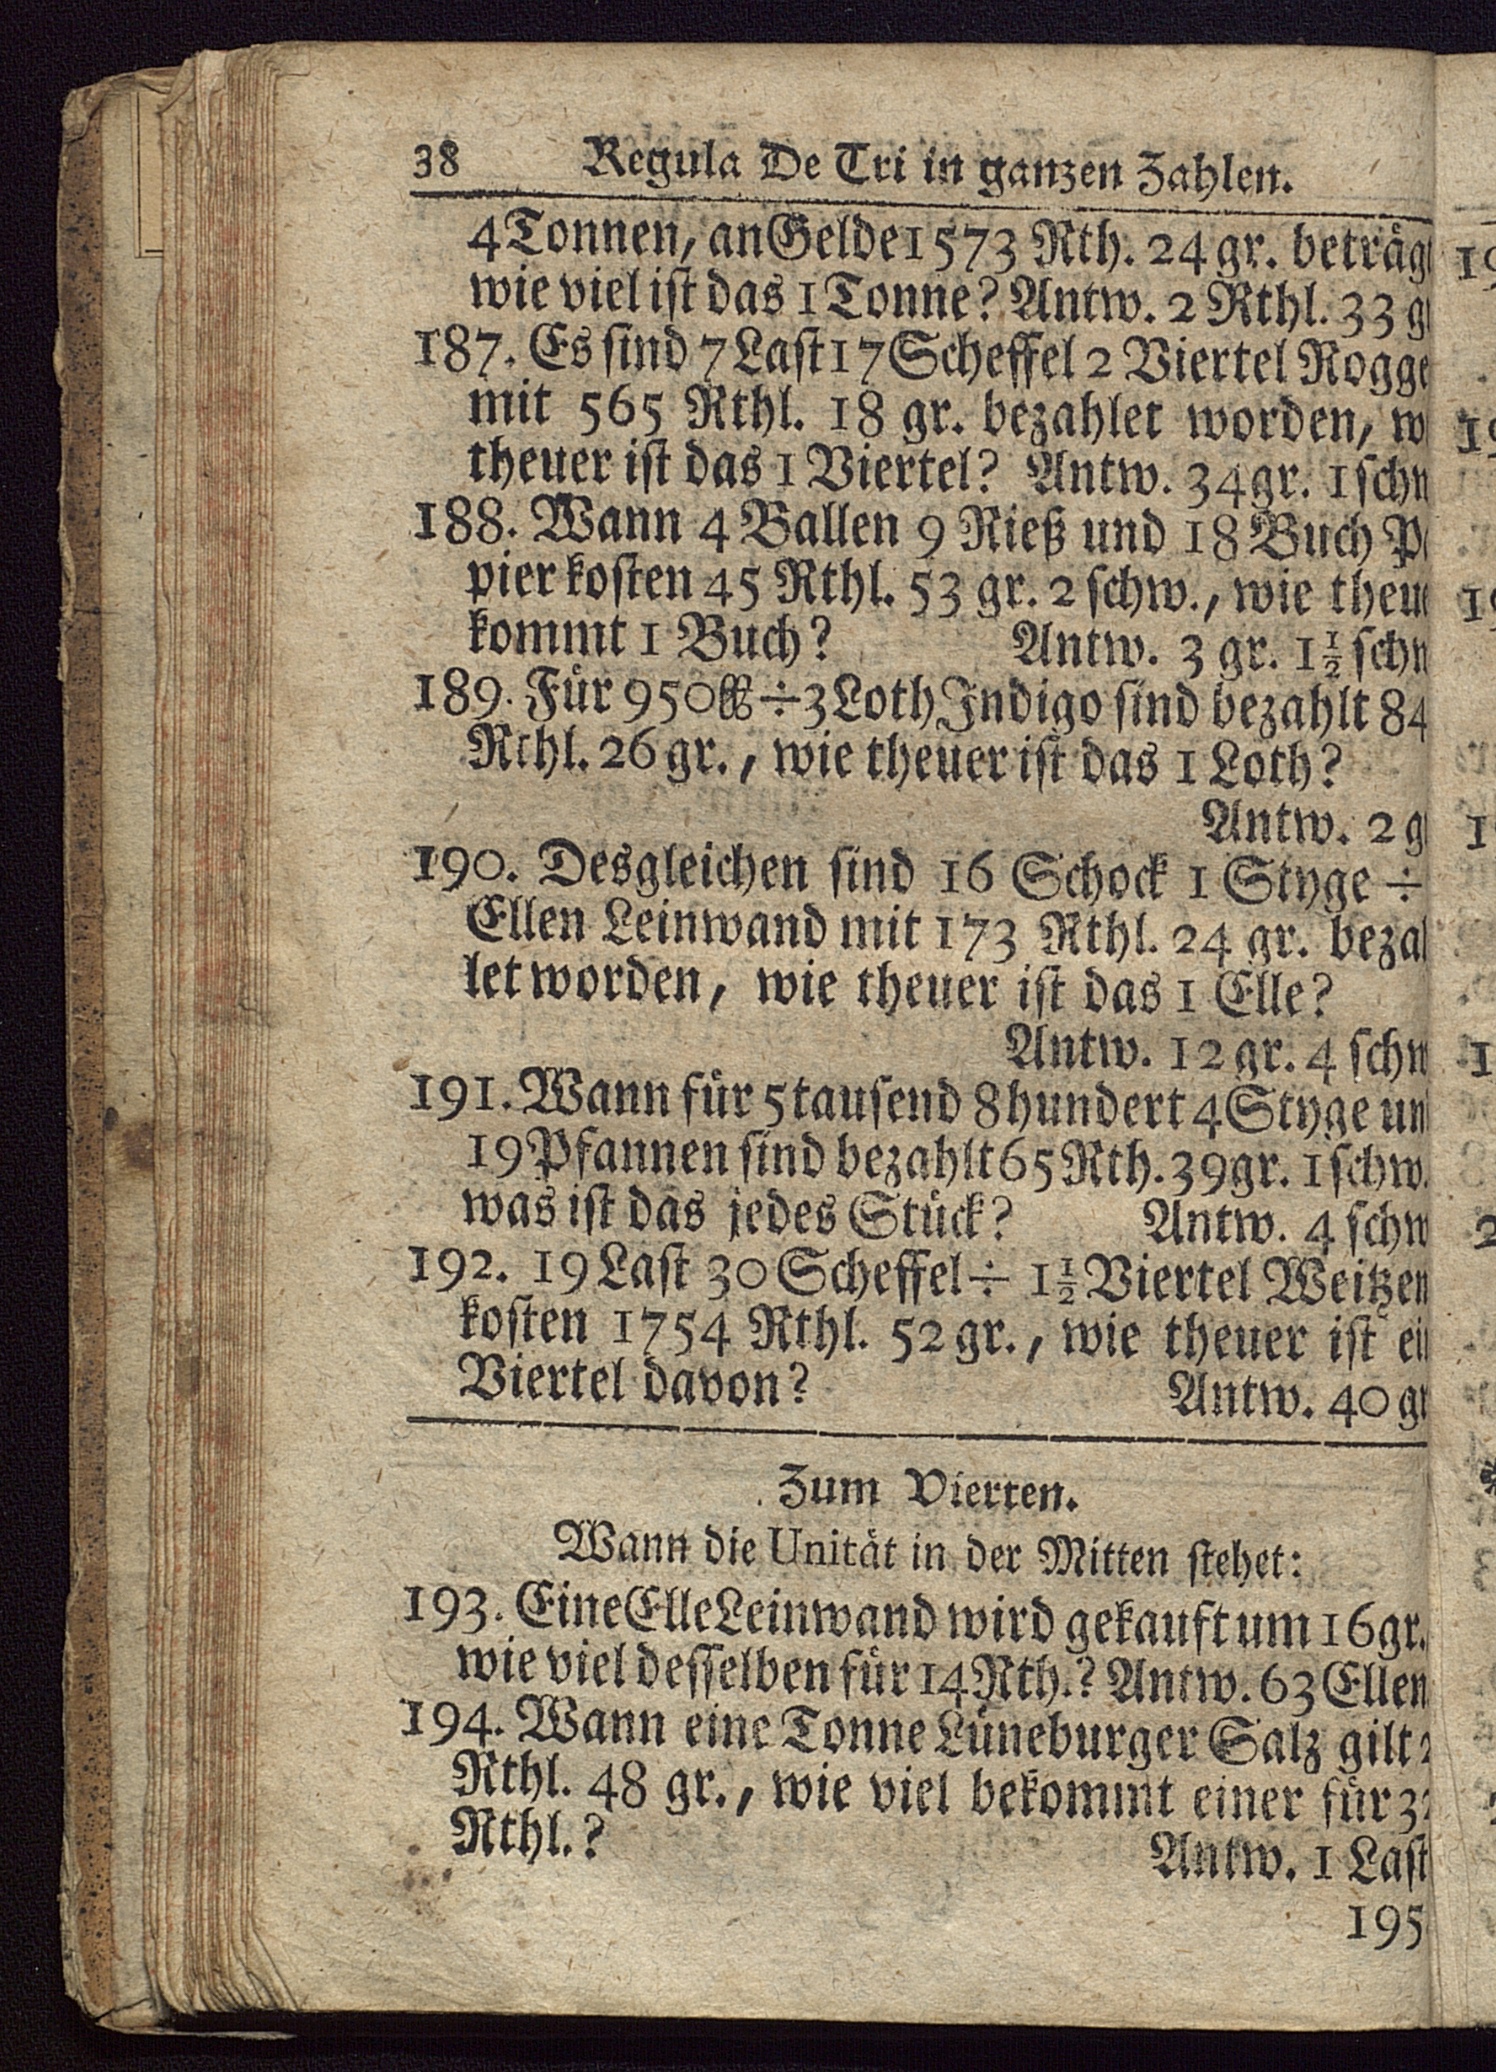 38 Regula De Tri in ganzen Zahlen.
4 Tonnen, an Gelde 1573 Rth. 24 gr. beträg
wie viel ist das 1 Tonne? Antw. 2 Rthl. 33 g
187. Es sind 7 Last 17 Scheffel 2 Viertel Rogge
mit 565 Rthl. 18 gr. bezahlet worden, w
theuer ist das 1 Viertel? Antw. 34 gr. 1 schw
188. Wann 4 Ballen 9 Rieß und 18 Buch P
pier kosten 45 Rthl. 53 gr. 2 schw., wie theu
kommt 1 Buch? Antw. 3 gr. 1½ schw
189. Für 950 ℔ ÷ 3 Loth Indigo sind bezahlt 84
Rthl. 26 gr., wie theuer ist das 1 Loth?
Antw. 2 g
190. Desgleichen sind 16 Schock 1 Styge ÷
Ellen Leinwand mit 173 Rthl. 24 gr. beza
let worden, wie theuer ist das 1 Elle?
Antw. 12 gr. 4 schw
191. Wann für 5 tausend 8 hundert 4 Styge un
19 Pfannen sind bezahlt 65 Rth. 39 gr. 1 schw.
was ist das jedes Stück? Antw. 4 schw
192. 19 Last 30 Scheffel ÷ 1½ Viertel Weitzen
kosten 1754 Rthl. 52 gr., wie theuer ist ei
Viertel davon? Antw. 40 gr
Zum Vierten.
Wann die Unität in der Mitten stehet:
193. Eine Elle Leinwand wird gekauft um 16 gr.
wie viel desselben für 14 Rth.? Antw. 63 Ellen
194. Wann eine Tonne Lüneburger Salz gilt 2
Rthl. 48 gr., wie viel bekommt einer für 3
Rthl.? Antw. 1 Last
195